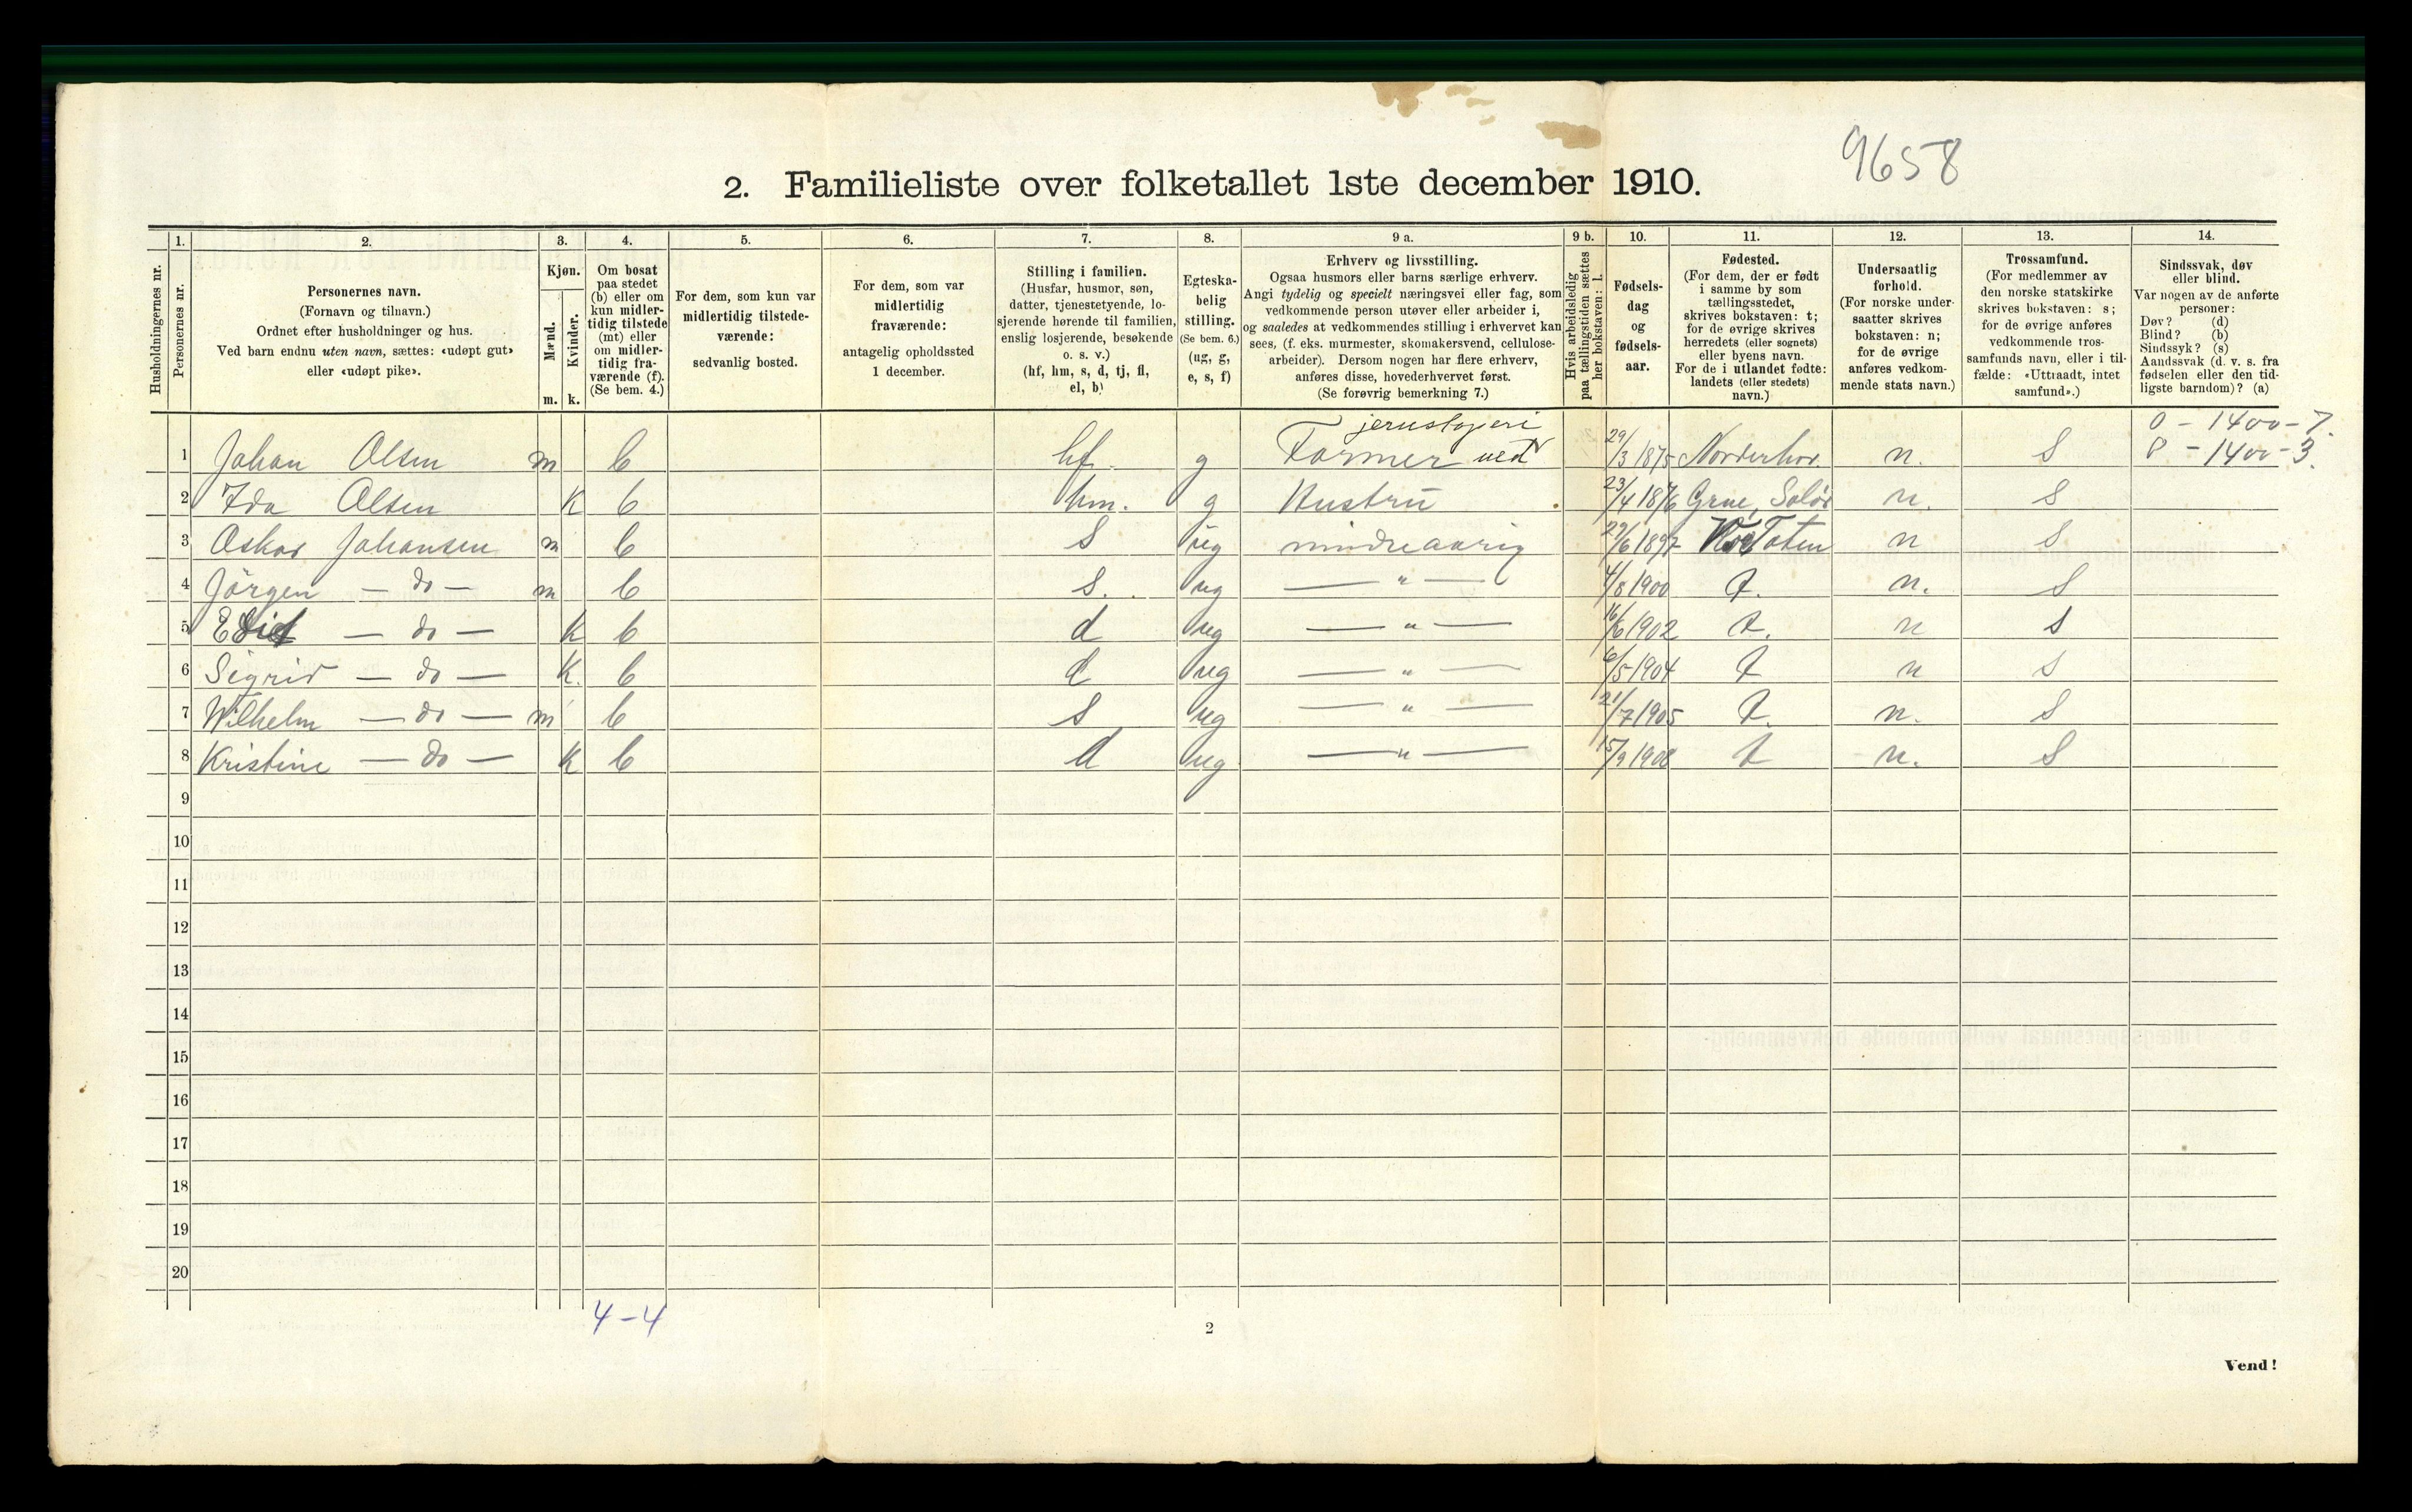 9658
2. Familieliste over folketallet 1ste december 1910.
1. 2. 3. 4. 5. 6. 7. 8. 9 a. 9 b. 10. 11. 12. 13. 14.
Husholdningernes nr.
Personernes nr.
Personernes navn.
(Fornavn og tilnavn.)
Ordnet efter husholdninger og hus.
Ved barn endnu uten navn, sættes: «udøpt gut»
eller «udøpt pike».
Kjøn.
Mænd.
Kvinder.
m. k.
Om bosat
paa stedet
(b) eller om
kun midler-
tidig tilstede
(mt) eller
om midler-
tidig fra-
værende (f).
(Se bem. 4.)
For dem, som kun var
midlertidig tilstede-
værende:
sedvanlig bosted.
For dem, som var
midlertidig
fraværende:
antagelig opholdssted
1 december.
Stilling i familien.
(Husfar, husmor, søn,
datter, tjenestetyende, lo-
sjerende hørende til familien,
enslig losjerende, besøkende
o. s. v.)
(hf, hm, s, d, tj, fl,
el, b)
Egteska-
belig
stilling.
(Se bem. 6.)
(ug, g,
e, s, f)
Erhverv og livsstilling.
Ogsaa husmors eller barns særlige erhverv.
Angi tydelig og specielt næringsvei eller fag, som
vedkommende person utøver eller arbeider i,
og saaledes at vedkommendes stilling i erhvervet kan
sees, (f. eks. murmester, skomakersvend, cellulose-
arbeider). Dersom nogen har flere erhverv,
anføres disse, hovederhvervet først.
(Se forøvrig bemerkning 7.)
Hvis arbeidsledig
paa tællingstiden sættes
her bokstaven: l.
Fødsels-
dag
og
fødsels-
aar.
Fødested.
(For dem, der er født
i samme by som
tællingsstedet,
skrives bokstaven: t;
for de øvrige skrives
herredets (eller sognets)
eller byens navn.
For de i utlandet fødte:
landets (eller stedets)
navn.)
Undersaatlig
forhold.
(For norske under-
saatter skrives
bokstaven: n;
for de øvrige
anføres vedkom-
mende stats navn.)
Trossamfund.
(For medlemmer av
den norske statskirke
skrives bokstaven: s;
for de øvrige anføres
vedkommende tros-
samfunds navn, eller i til-
fælde: «Uttraadt, intet
samfund».)
Sindssvak, døv
eller blind.
Var nogen av de anførte
personer:
Døv? (d)
Blind? (b)
Sindssyk? (s)
Aandssvak (d. v. s. fra
fødselen eller den tid-
ligste barndom)? (a)
jernstøperi 0 - 1400 - 7.
1 Johan Olsen m b hf. g Former ved 29/3 1875 Norderhov. n. S 8 - 1400 - 3.
2 Ida Olsen K b hm. g Hustru 23/4 1876 Grue, Solør n. S
3 Oskar Johansen m b S ug mindreaarig 29/6 1897 Toten n S
4 Jörgen — do — m b s. ug — " — 4/8 1900 t. n. S
5 — do — K b d ug — " — 16/6 1902 t. n S
6 Sigrid — do — K. b d ug — " — 6/5 1904 t n S
7 Wilhelm — do — m b S ug — " — 21/7 1905 t. n. S
8 Kristine — do — K b d ug — " — 15/9 1908 t n. S
9
10
11
12
13
14
15
16
17
18
19
20
4-4
2
Vend!